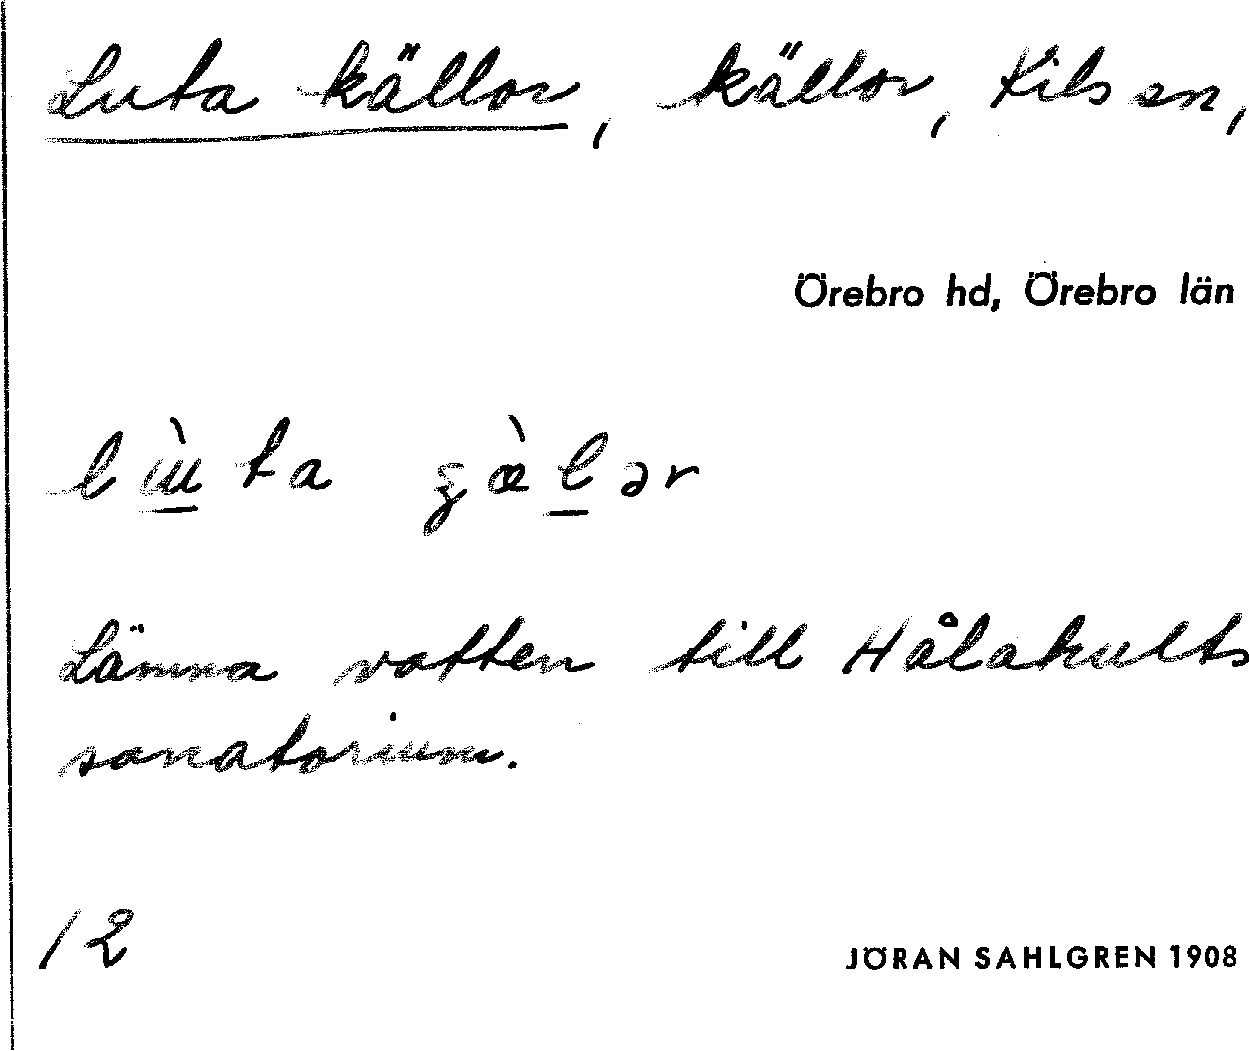 Luta källor, källor, Kils sn,
Örebro hd, Örebro län
Lämna vatten till Hålahults
sanatorium.
12
JÖRAN SAHLGREN 1908